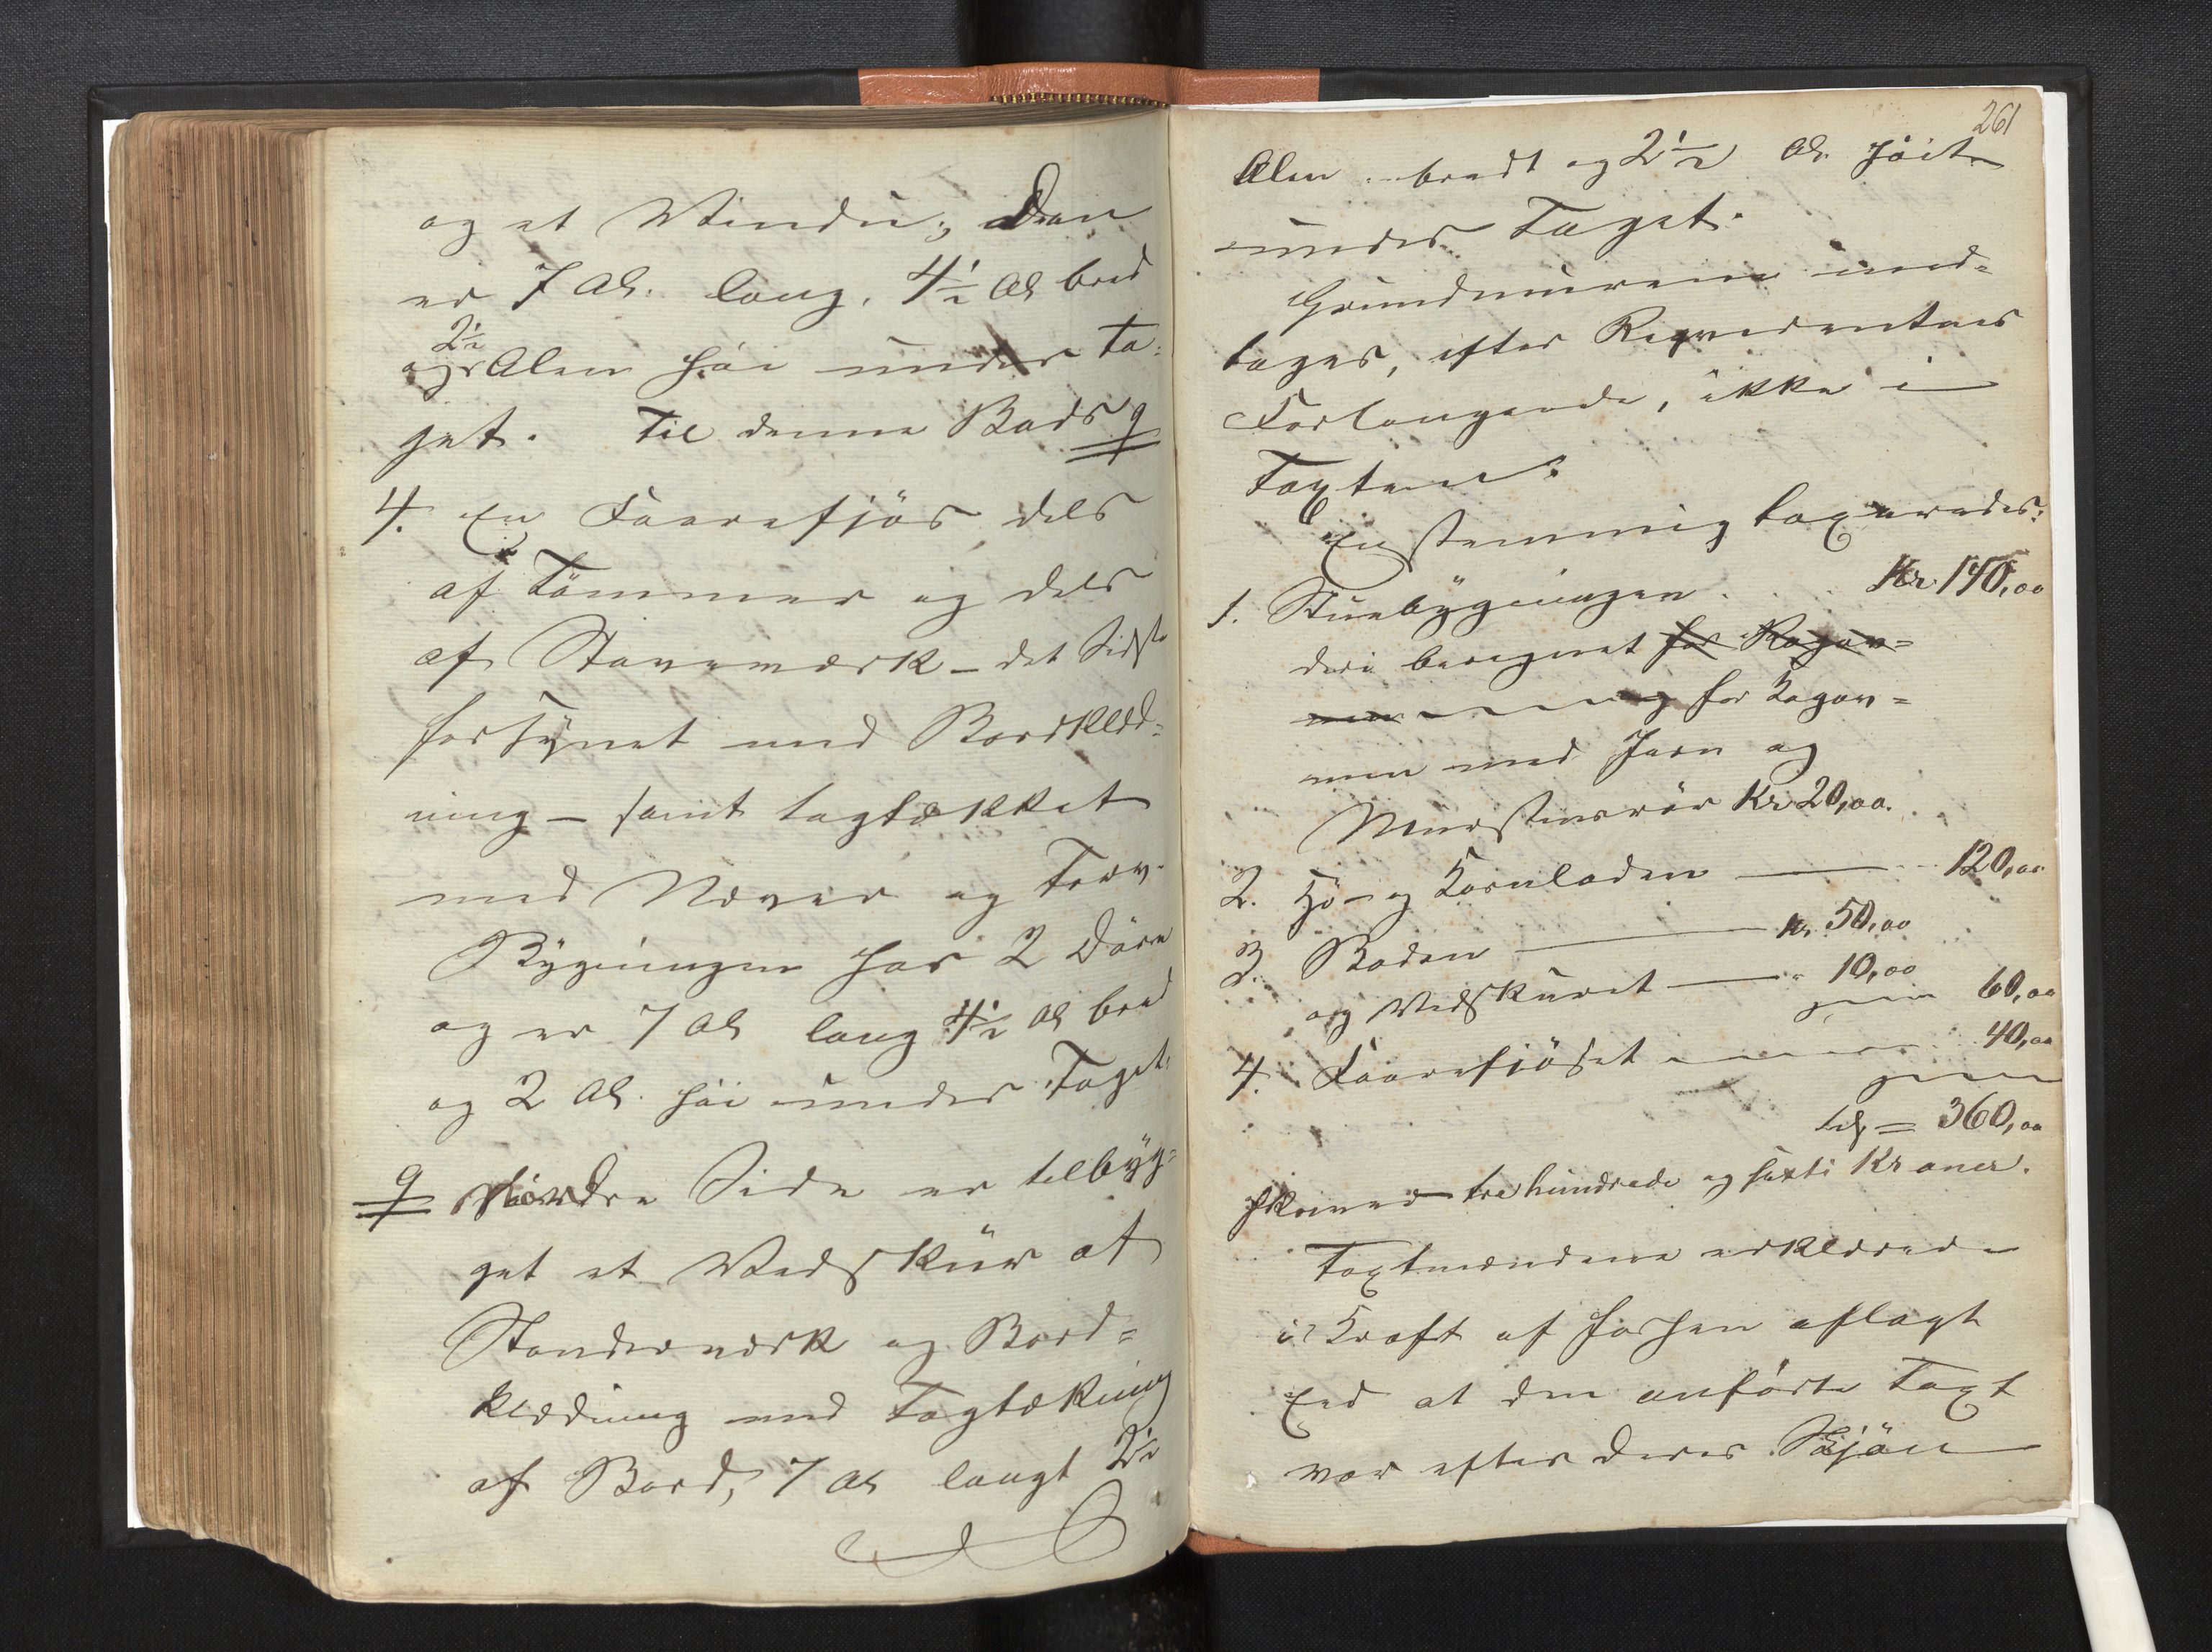 og et Vindu; Den
er 7 Al. lang, 4 1/2 Al bred
2 1/2
og Alen høi under Ta-
get. Til denne Bods
4. En Faarefjös dels
af Tömmer og dels
af Stavværk – det sidste
forsynet med Bordklæd-
ning – samt tagtækket
med Næver og Torv.
Bygningen har 2 Döre
og er 7 Al lang 4 1/2 Al bred
og 2 Al. høi under Taget.
Nordre Side er tilbyg-
get et Vedskur af
Standerværk og Bord-
klædning med Tagtækning
af Bord, 7 Al langt 2 1/2
261
Alen bredt og 2 1/2 Al. høit
under Taget.
Grundmurene med-
tages, efter Reqvirentens
Forlangende, ikke i
Taxten.
Enstemmig taxeredes:
1. Stuebygningen . . . Kr. 140,00
deri beregnet for Kogov-
for Kogov-
nen med Jern og
Muurstensrör Kr 20,00.
2. Hö- og Kornladen — 120,00
3. Boden — Kr. 50,00
og Vedskuret — " 10,00
60,00
4. Faarefjöset 40,00
tils = 360,00
skriver tre hundrede og sexti Kroner.
Taxtmændene erklærede
i Kraft af forhen aflagt
Eed at den anförte Taxt
var efter deres Skjön